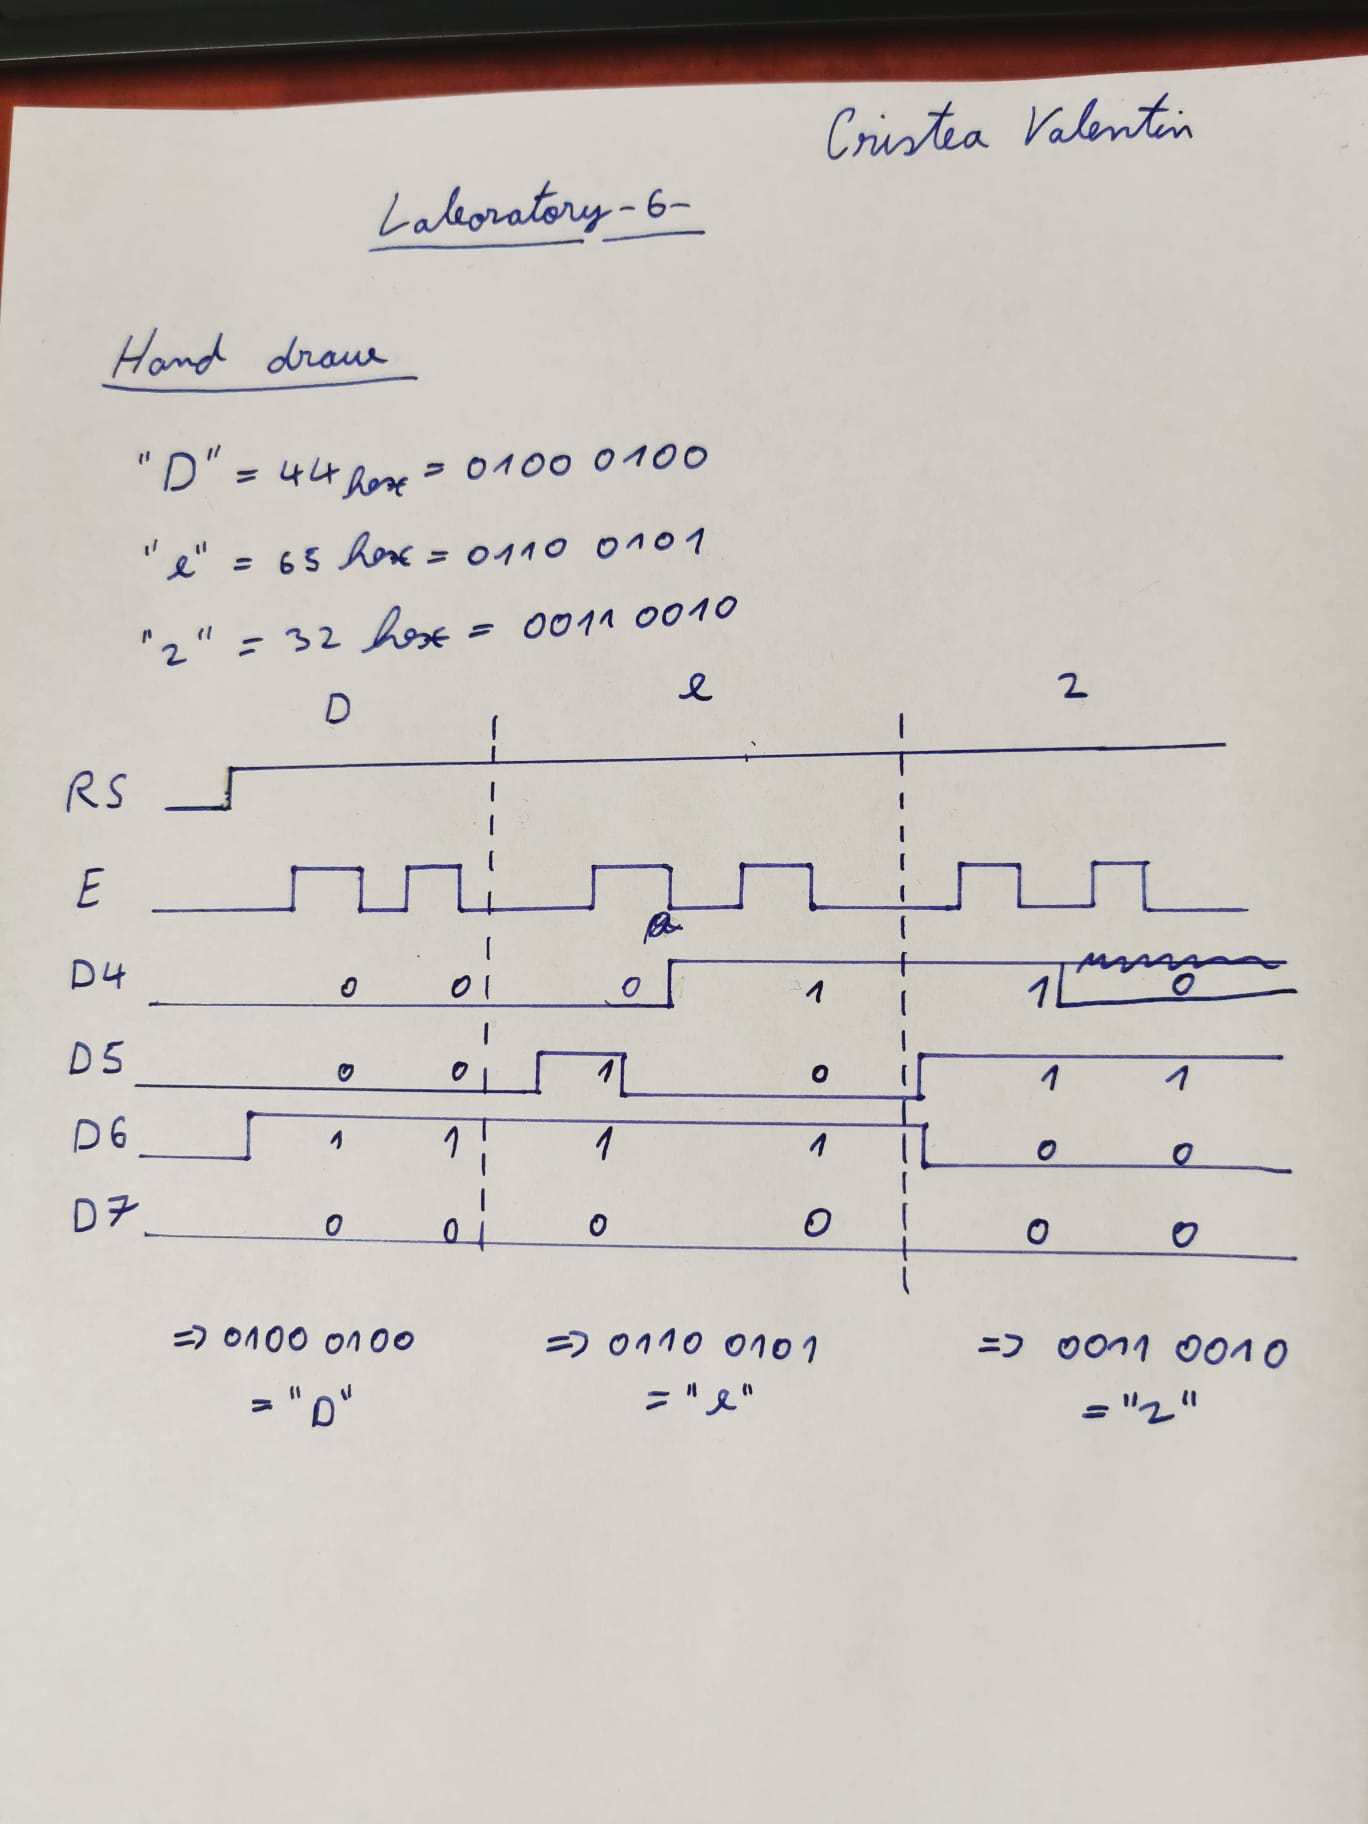 Cristea Valentin
Laboratory -6-
Hand draw
"D" = 44 hex = 0100 0100
"e" = 65 hex = 0110 0101
"2" = 32 hex = 0011 0010
D e 2
RS
E
D4 0 0 0 1 1 0
D5 0 0 1 0 1 1
D6 1 1 1 1 0 0
D7 0 0 0 0 0 0
=> 0100 0100 => 0110 0101 => 0011 0010
= "D" = "e" = "2"